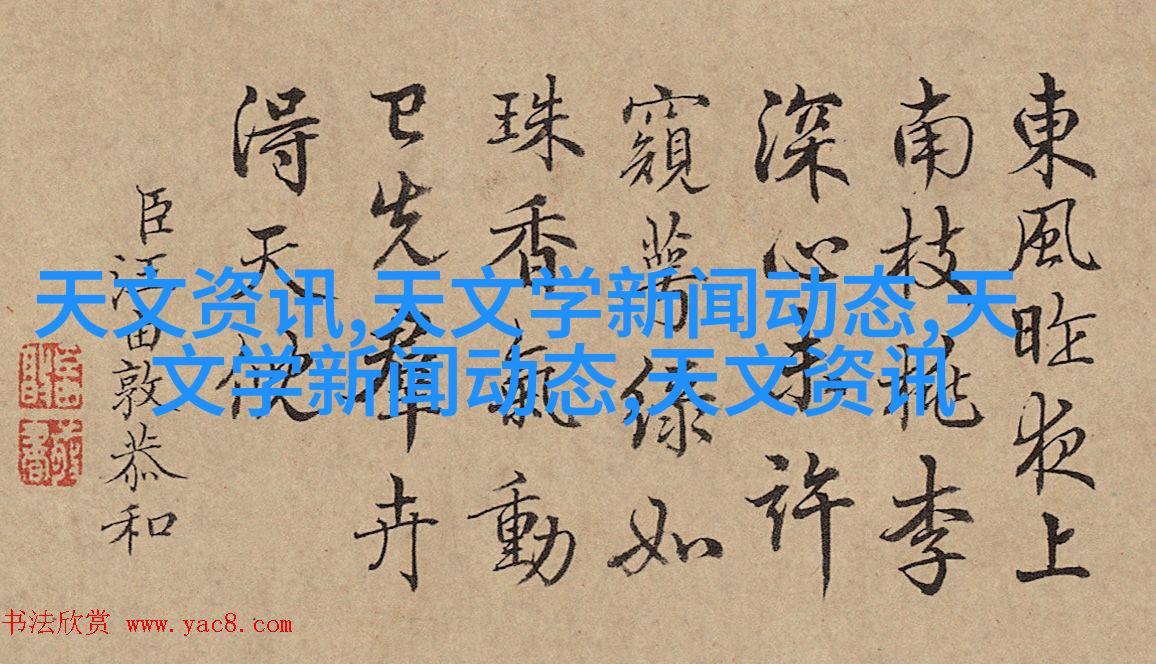 東風昨夜上
南枝桃李
深心未許
窺萼綠如
珠香氣動
已先羣卉
得天
臣汪由敦恭和
天文资讯,天文学新闻动态,天
文学新闻动态,天文资讯
书法欣赏 www.yac8.com